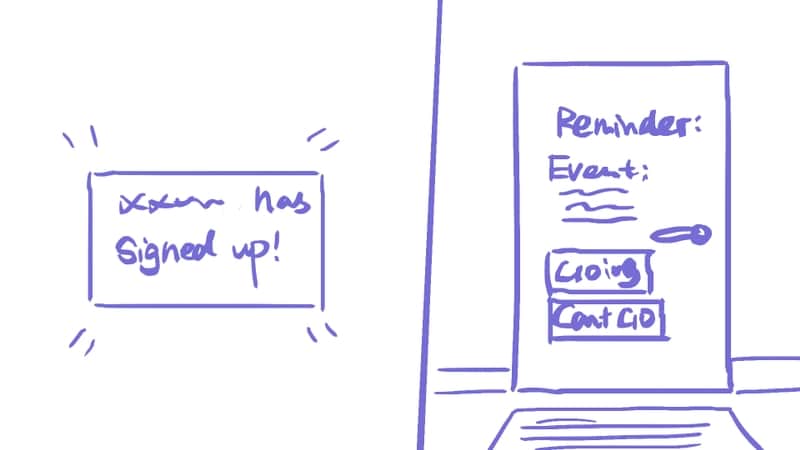 has
Signed up!
Reminder:
Event:
Going
Cant GO